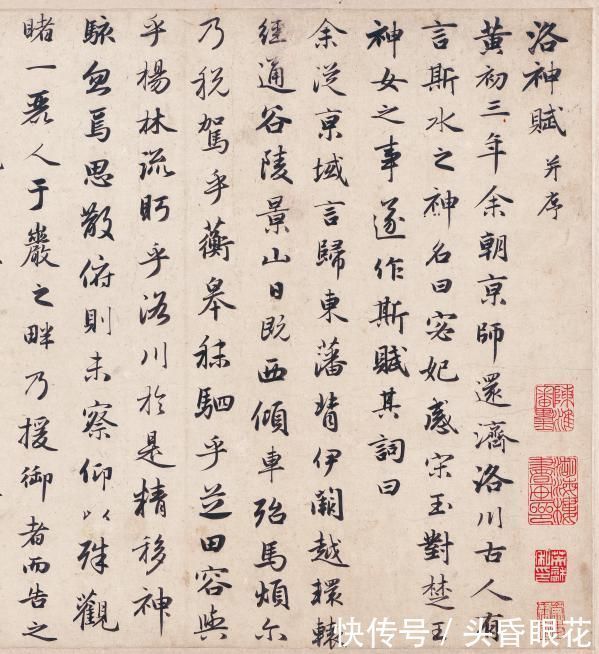 洛神賦 并序
黄初三年余朝京師還濟洛川古人有
言斯水之神名曰宓妃感宋玉對楚王
神女之事遂作斯賦其詞曰
余從京域言歸東藩背伊闕越轘轅
經通谷陵景山日既西傾車殆馬煩尓
乃税駕乎蘅皋秣駟乎芝田容與
乎楊林流眄乎洛川於是精移神
駭忽焉思散俯則未察仰以殊觀
睹一麗人于巖之畔乃援御者而告之
快传号 / 头昏眼花